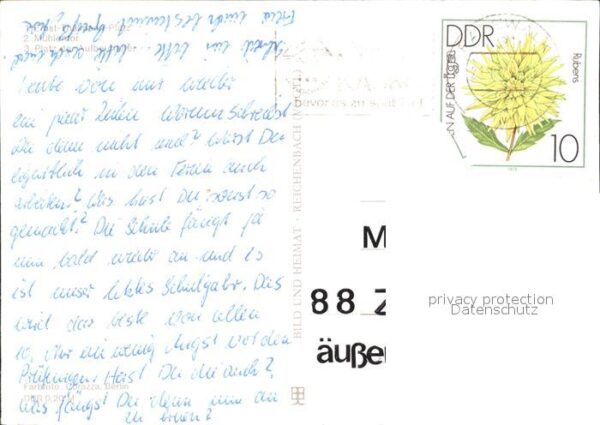 2. Mühlentor
3. Platz der Aufbauhelfer
Heute von mir wieder
ein paar Zeilen. Warum schreibst
Du denn nicht mal? Wirst Du
eigentlich in den Ferien auch
arbeiten? Was hast Du sonst so
gemacht? Die Schule fängt ja
nun bald wieder an und es
ist unser letztes Schuljahr. Das
wird das beste von allen
10. Nur ein wenig Angst vor den
Prüfungen. Hast Du die auch?
Was fängst Du denn nun an
zu lernen?
Farbfoto: Berlin
BILD UND HEIMAT · REICHENBACH
bevor es zu spät ist
DDR
Rubens
10
M
88 Z
äuße
privacy protection
Datenschutz